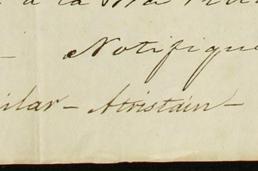 a la
Notifique
ilar - Atristain -